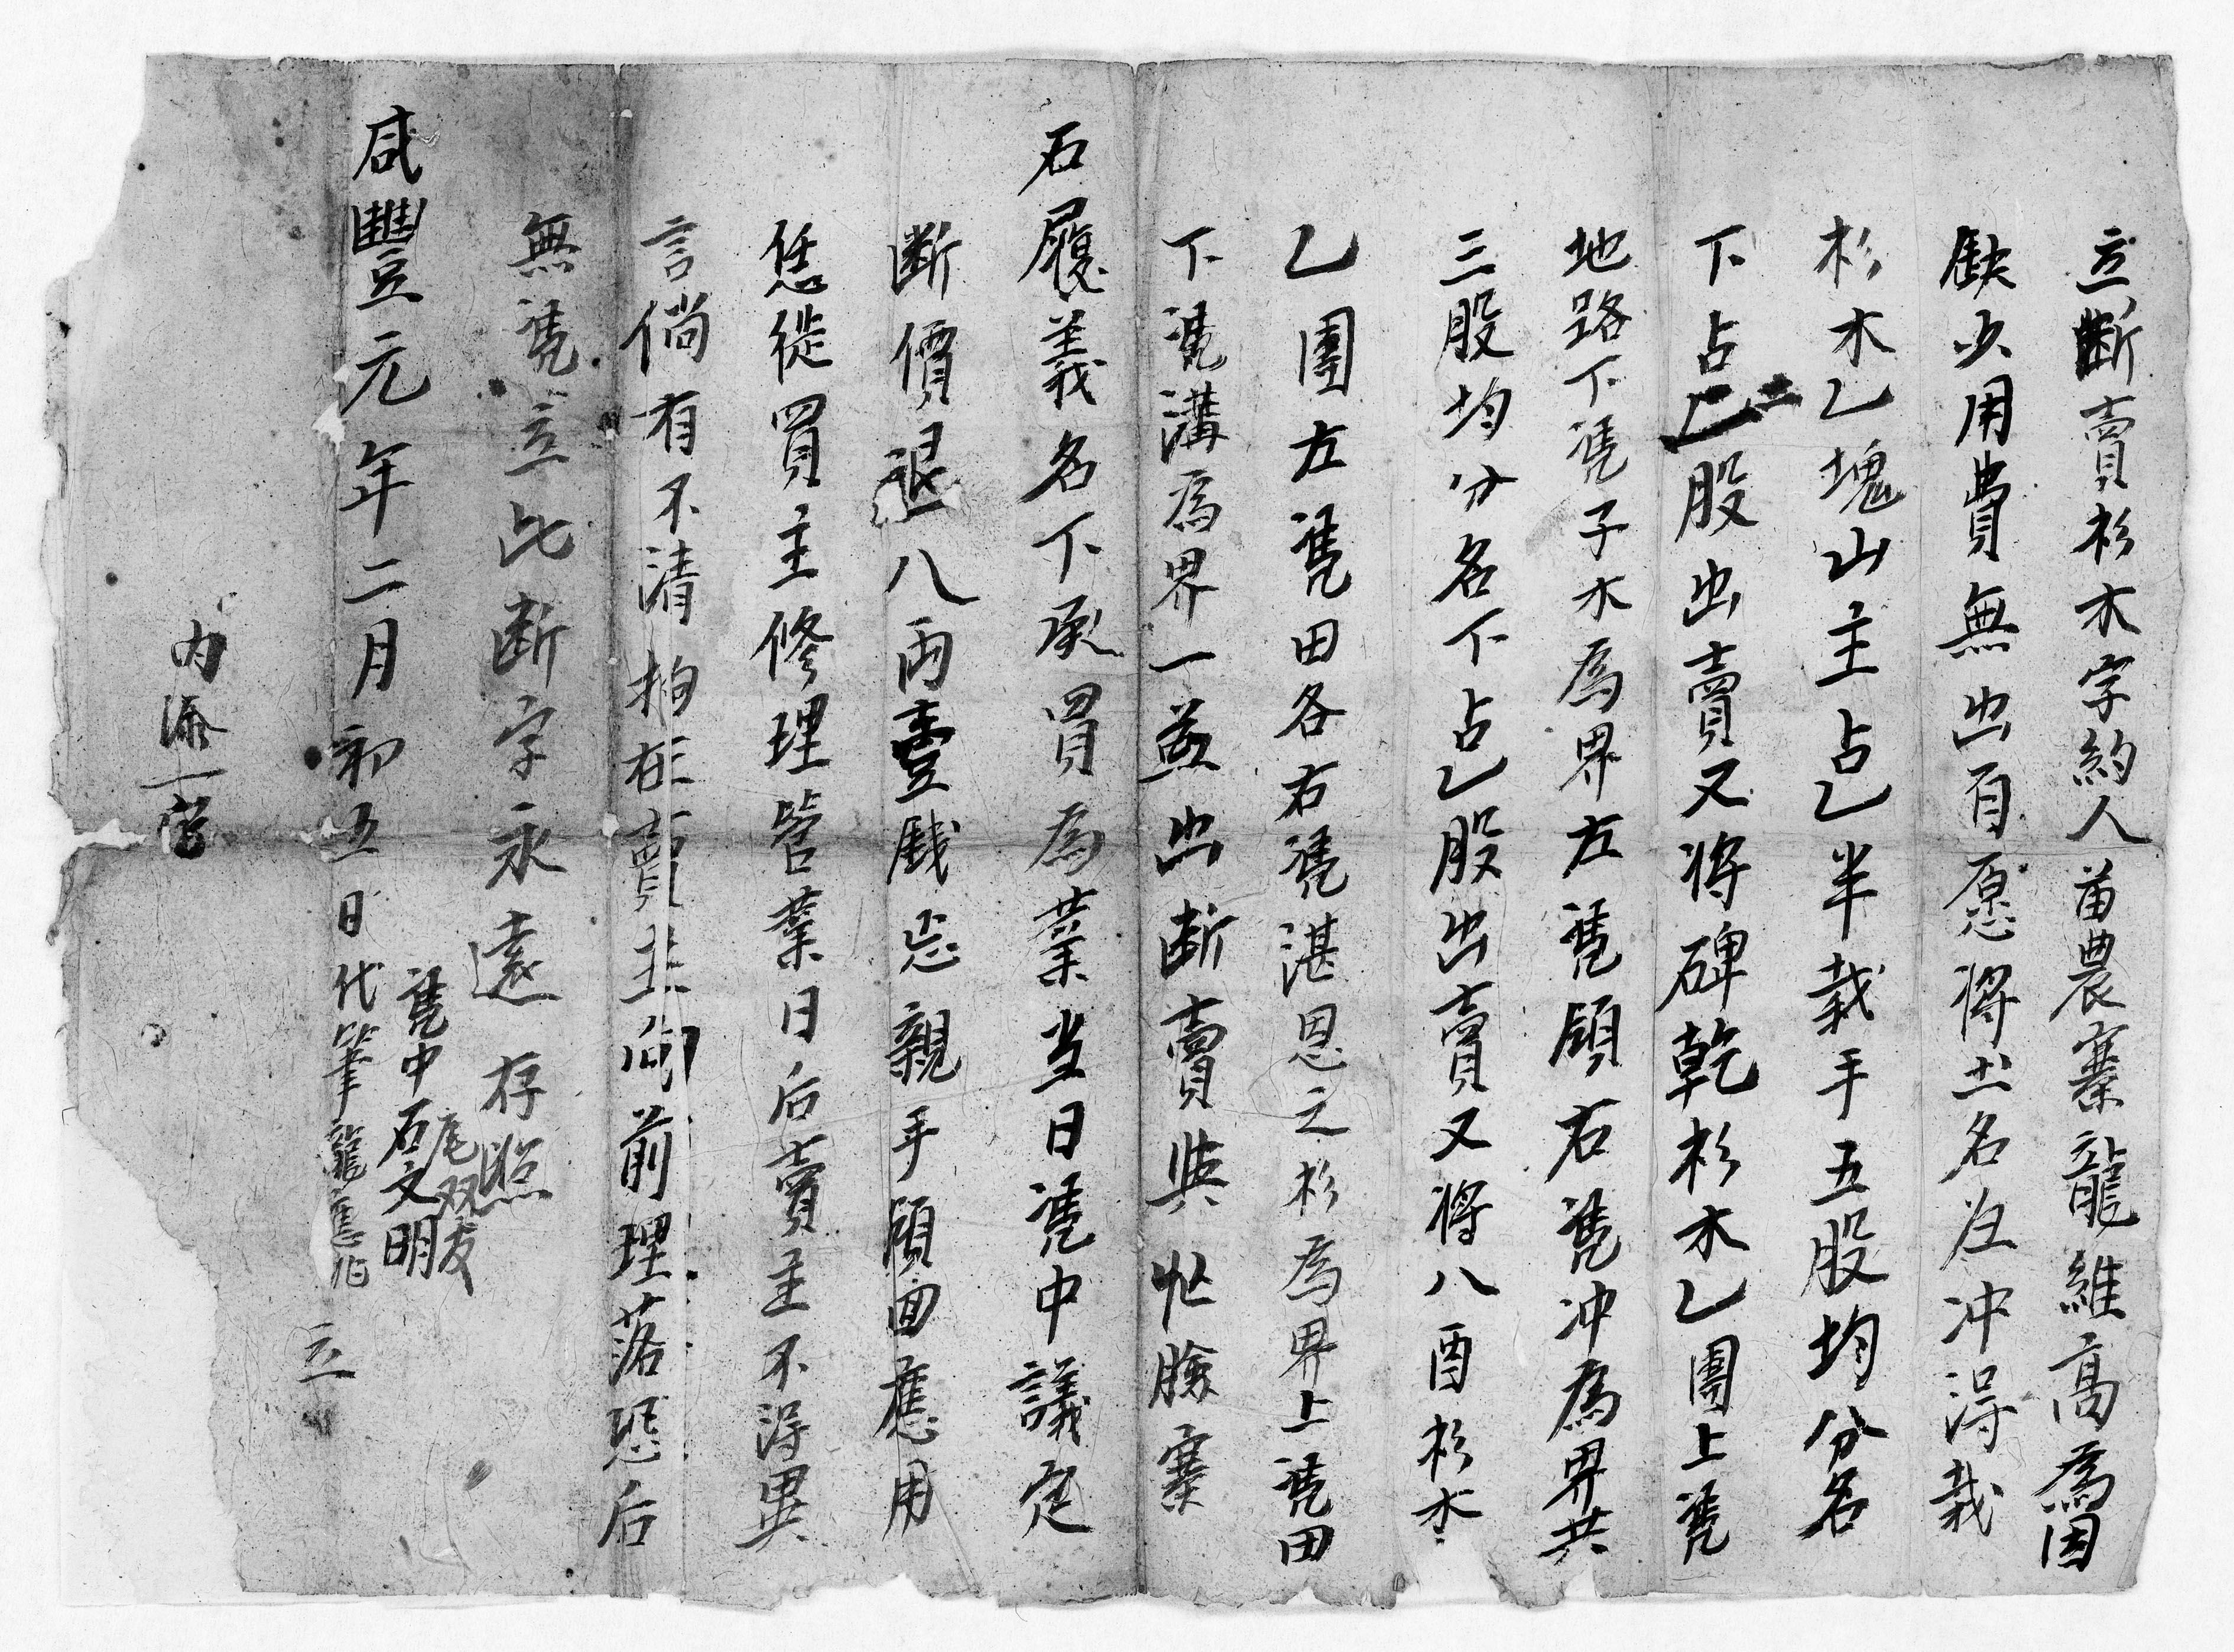 立斷賣杉木字約人苗農寨龍維高為因
缺少用費無出自愿將土名在冲得栽
杉木乙塊山主占乙半栽手五股均分名
下占二股出賣又將碑乾杉木乙團上憑
地路下憑子木為界左憑領右憑冲為界共
三股均分名下占乙股出賣又將八酉杉木
乙團左憑田各右憑湛恩之杉為界上憑田
下憑溝為界一並出断賣與 臉寨
石履義名下承買為業当日憑中議定
断價銀八両壹錢 親手領回應用
恁從買主修理管業日后賣主不得異
言倘有不清拘在賣主向前理落恐后
無憑立此断字永遠存照
憑中 石文明 龙双友
咸豐元年二月初五日代筆龍 立
内添一